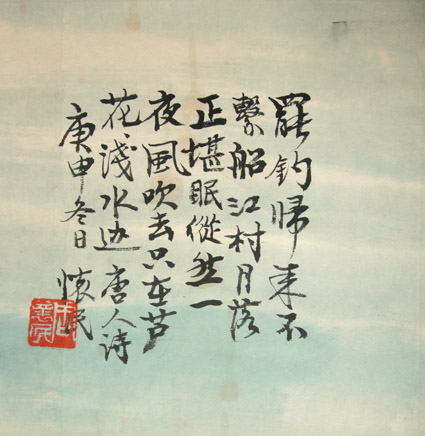 罷钓歸来不
繫船江村月落
正堪眠縱然一
夜風吹去只在芦
花淺水边唐人诗
庚申冬日懷民